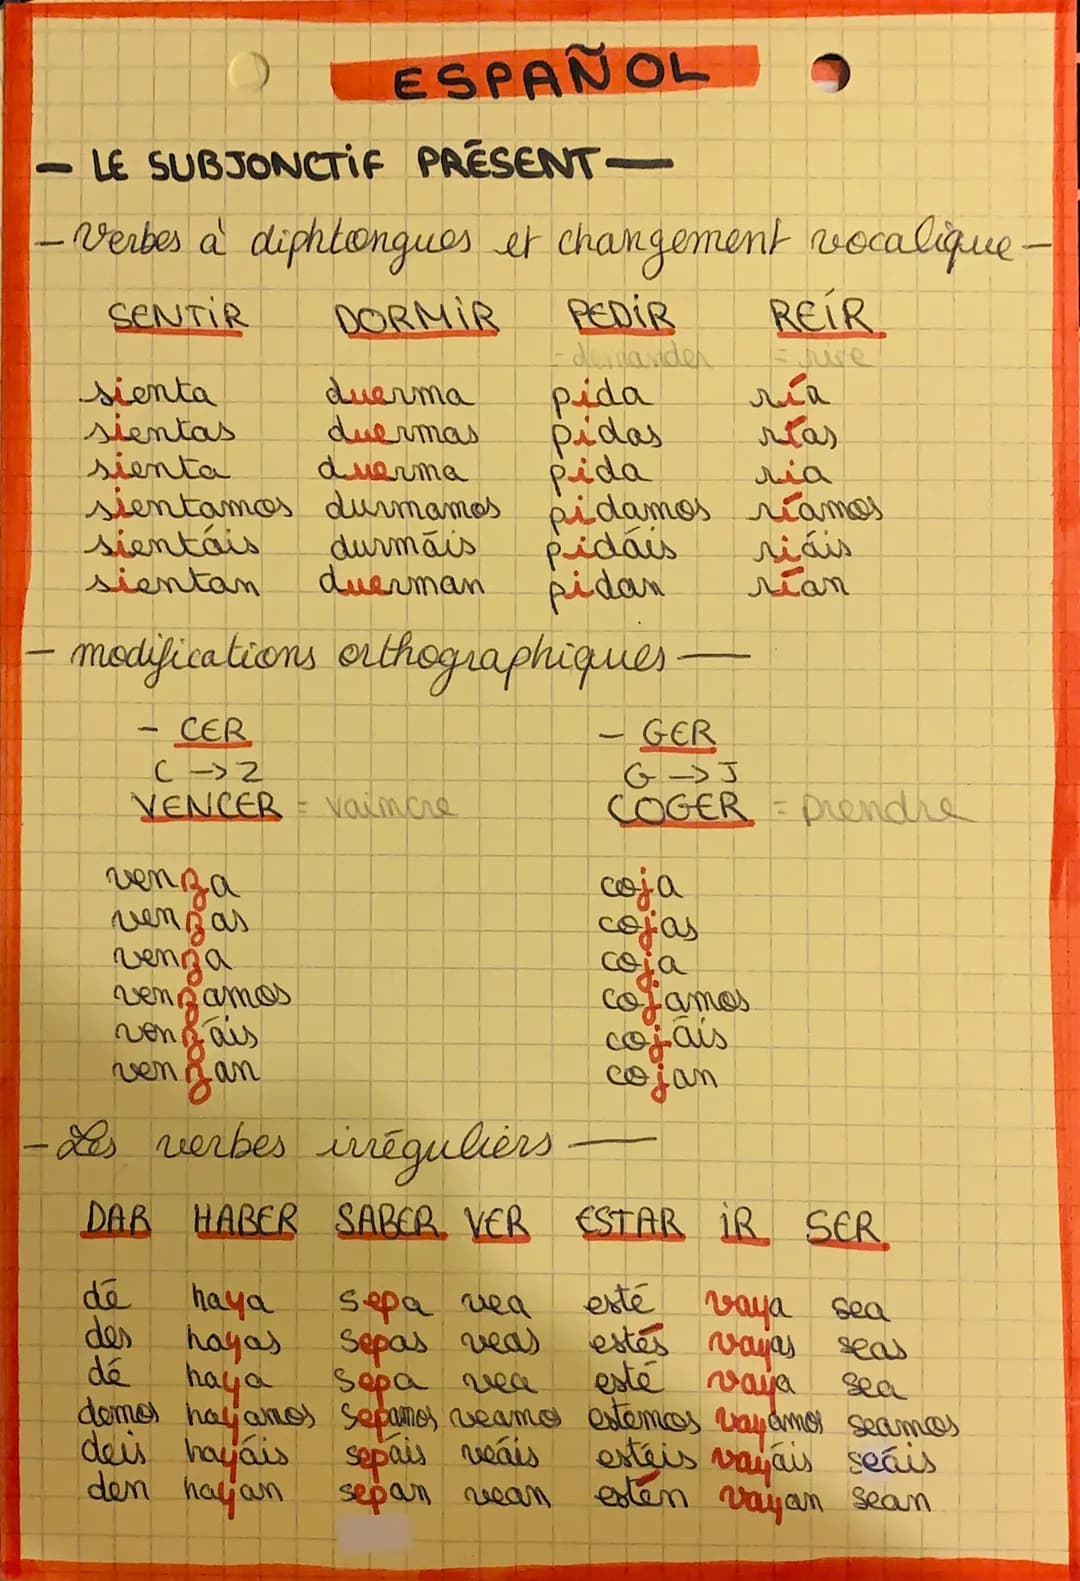 ESPAÑOL
- LE SUBJONCTIF PRÉSENT -
- Verbes à diphtongues et changement vocalique -
SENTIR DORMIR PEDIR REÍR
= demander = rire
sienta duerma pida ría
sientas duermas pidas rías
sienta duerma pida ria
sientamos durmamos pidamos ríamos
sientáis durmáis pidáis riáis
sientan duerman pidan rían
- modifications orthographiques -
- CER - GER
C -> Z G -> J
VENCER = vaincre COGER = prendre
venza coja
venzas cojas
venza coja
venzamos cojamos
venzáis cojáis
venzan cojan
- Les verbes irréguliers -
DAR HABER SABER VER ESTAR IR SER
dé haya sepa vea esté vaya sea
des hayas sepas veas estés vayas seas
dé haya sepa vea esté vaya sea
demos hayamos sepamos veamos estemos vayamos seamos
deis hayáis sepáis veáis estéis vayáis seáis
den hayan sepan vean estén vayan sean